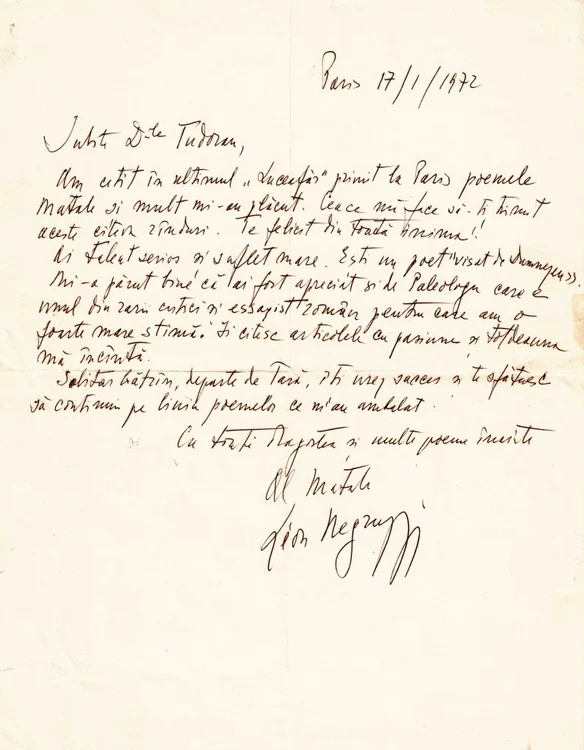 Paris 17/1/1972
Iubite Dle Tudoran,
Am citit în ultimul "Luceafăr" primit la Paris poemele
Matale și mult mi-au plăcut. Ceace mă face să-ți trimit
aceste câteva rânduri. Te felicit din toată inima!
Ai talent serios și suflet mare. Ești un poet "visat de Dumnezeu".
Mi-a părut bine că ai fost apreciat și de Paleologu care e
unul din rarii critici și essayist român pentru care am o
foarte mare stimă. Îi citesc articolele cu pasiune și totdeauna
mă încântă.
Solitar bătrân, departe de Țară, îți urez succes și te sfătuesc
să continui pe linia poemelor ce m'au ambalat.
Cu toată dragostea și multe poeme
Al Matale
Léon Negruzzi